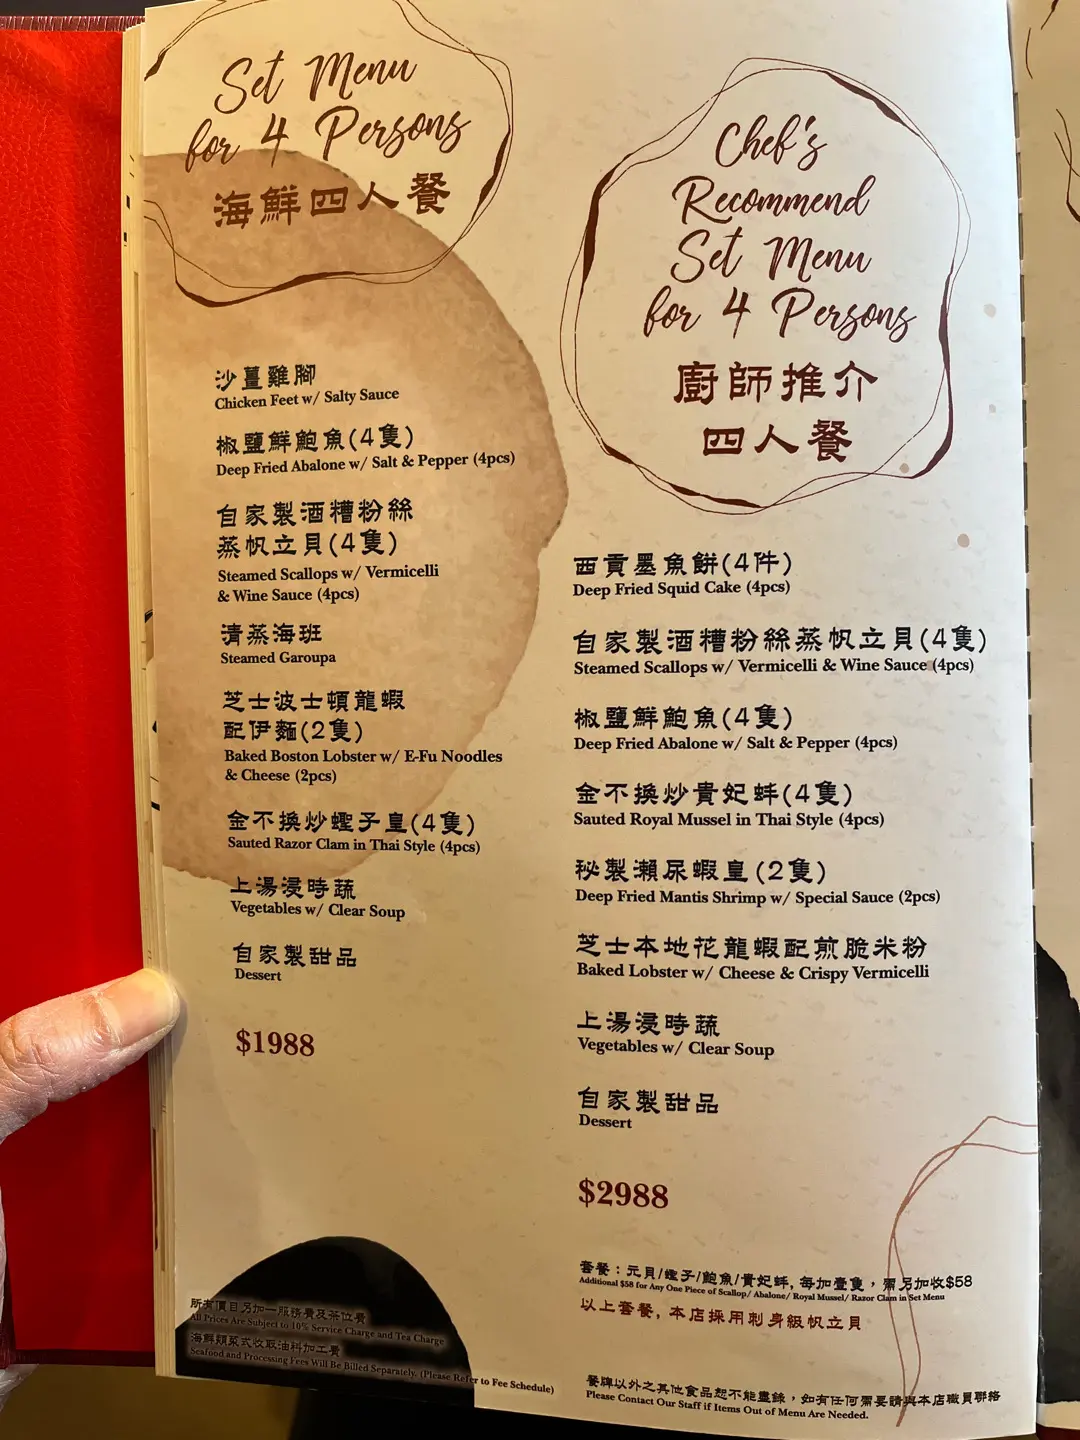 Set Menu
for 4 Persons
海鮮四人餐
沙薑雞腳
Chicken Feet w/ Salty Sauce
椒鹽鮮鮑魚(4隻)
Deep Fried Abalone w/ Salt & Pepper (4pcs)
自家製酒糟粉絲
蒸帆立貝(4隻)
Steamed Scallops w/ Vermicelli
& Wine Sauce (4pcs)
清蒸海班
Steamed Garoupa
芝士波士頓龍蝦
配伊麵(2隻)
Baked Boston Lobster w/ E-Fu Noodles
& Cheese (2pcs)
金不換炒蟶子皇(4隻)
Sauted Razor Clam in Thai Style (4pcs)
上湯浸時蔬
Vegetables w/ Clear Soup
自家製甜品
Dessert
$1988
所有價目另加一服務費及茶位費
All Prices Are Subject to 10% Service Charge and Tea Charge
海鮮類菜式收取油料加工費
Seafood and Processing Fees Will Be Billed Separately. (Please Refer to Fee Schedule)
Chef's
Recommend
Set Menu
for 4 Persons
廚師推介
四人餐
西貢墨魚餅(4件)
Deep Fried Squid Cake (4pcs)
自家製酒糟粉絲蒸帆立貝(4隻)
Steamed Scallops w/ Vermicelli & Wine Sauce (4pcs)
椒鹽鮮鮑魚(4隻)
Deep Fried Abalone w/ Salt & Pepper (4pcs)
金不換炒貴妃蚌(4隻)
Sauted Royal Mussel in Thai Style (4pcs)
秘製瀨尿蝦皇(2隻)
Deep Fried Mantis Shrimp w/ Special Sauce (2pcs)
芝士本地花龍蝦配煎脆米粉
Baked Lobster w/ Cheese & Crispy Vermicelli
上湯浸時蔬
Vegetables w/ Clear Soup
自家製甜品
Dessert
$2988
套餐：元貝/蟶子/鮑魚/貴妃蚌, 每加壹隻，需另加收$58
Additional $58 for Any One Piece of Scallop/ Abalone/ Royal Mussel/ Razor Clam in Set Menu
以上套餐, 本店採用刺身級帆立貝
餐牌以外之其他食品恕不能盡錄，如有任何需要請與本店職員聯絡
Please Contact Our Staff if Items Out of Menu Are Needed.